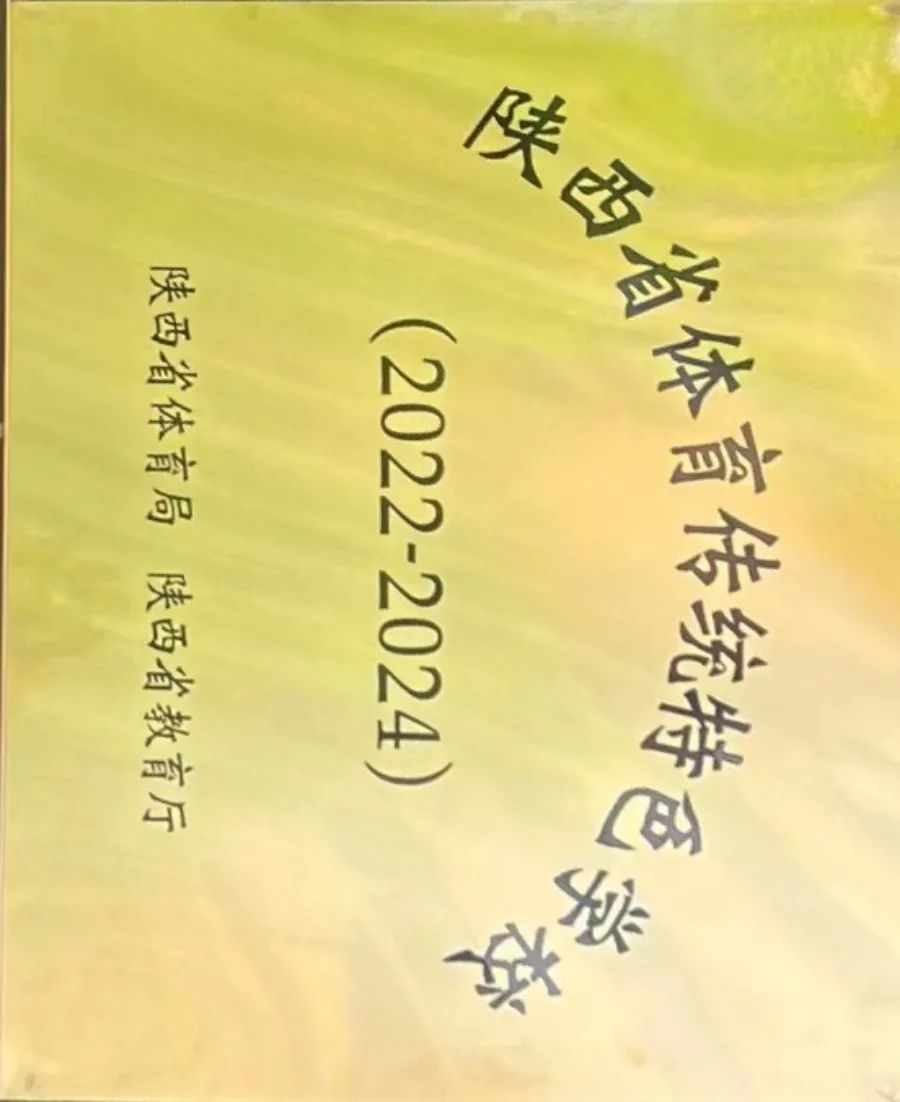 陕西省体育传统特色学校
(2022-2024)
陕西省体育局 陕西省教育厅